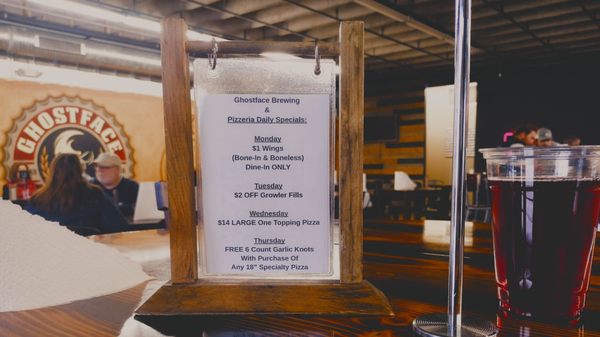 GHOSTFACE
Ghostface Brewing
&
Pizzeria Daily Specials:
Monday
$1 Wings
(Bone-In & Boneless)
Dine-In ONLY
Tuesday
$2 OFF Growler Fills
Wednesday
$14 LARGE One Topping Pizza
Thursday
FREE 6 Count Garlic Knots
With Purchase Of
Any 18" Specialty Pizza